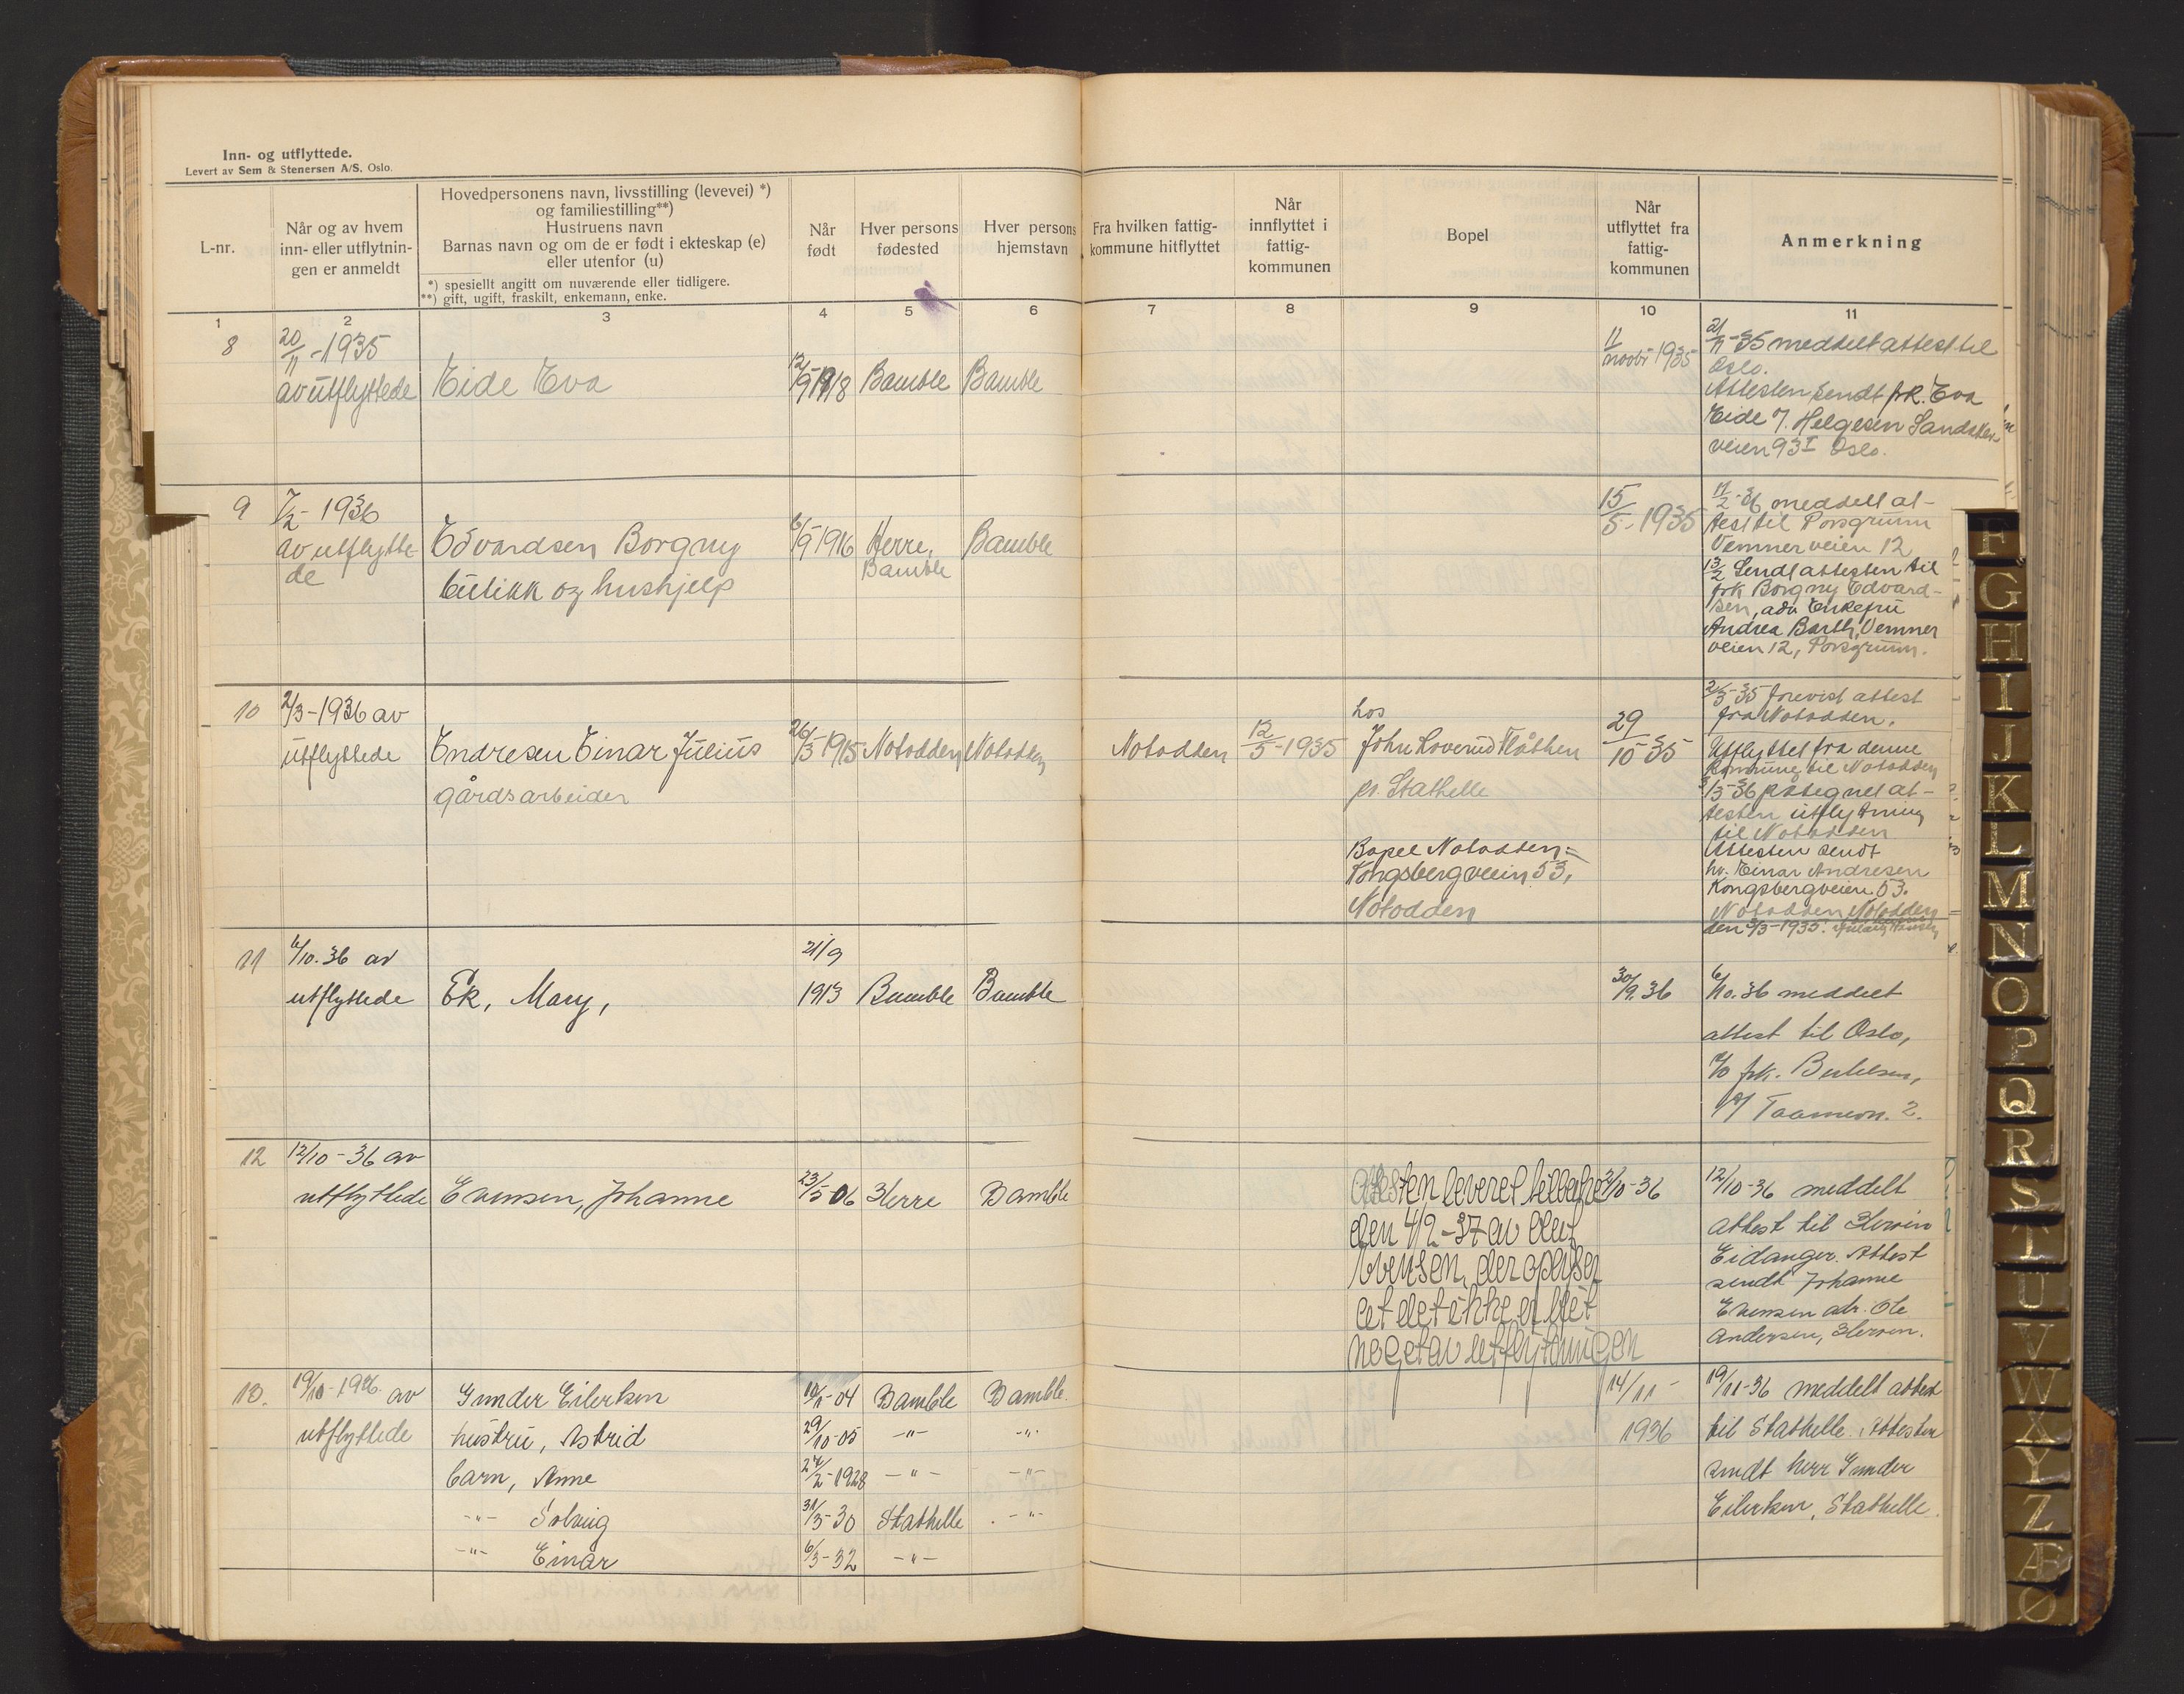 Inn- og utflyttede.
Levert av Sem & Stenersen A/S, Oslo.
L-nr.
Når og av hvem
inn- eller utflytnin-
gen er anmeldt
Hovedpersonens navn, livsstilling (levevei) *)
og familiestilling**)
Hustruens navn
Barnas navn og om de er født i ekteskap (e)
eller utenfor (u)
*) spesiellt angitt om nuværende eller tidligere.
**) gift, ugift, fraskilt, enkemann, enke.
Når
født
Hver persons
fødested
Hver persons
hjemstavn
Fra hvilken fattig-
kommune hitflyttet
Når
innflyttet i
fattig-
kommunen
Bopel
Når
utflyttet fra
fattig-
kommunen
Anmerkning
1 2 3 4 5 6 7 8 9 10 11
8
20/11-1935
av utflyttede
Eide Eva
12/9 1918
Bamble
Bamble
11/novbr 1935
21/11-35 meddelt attest til
Oslo.
Attesten sendt frk. Eva
Eide
Helgesen
veien 93 I Oslo.
9
7/2-1936
av utflytte-
de
Edvardsen Borgny
butikk og hushjelp
6/9 1916
Herre,
Bamble
Bamble
15/5-1935
11/2-36 meddelt at-
test til Porsgrunn
Vemner veien 12
13/2 Sendt attesten til
frk Borgny Edvard-
sen, adr Enkefru
Andrea Barth, Vemner
veien 12, Porsgrunn.
10
2/3-1936 av
utflyttede
Endresen Einar Julius
gårdsarbeider
26/3-1915
Notodden
Notodden
Notodden
12/5-1935
hos
John Loverud Flåthen
pr. Stathelle
Bopel Notodden =
Kongsbergveien 53,
Notodden
29/10-35
2/5-35 forevist attest
fra Notodden.
Utflyttet fra denne
Kommune til Notodden
3/3-36 påtegnet at-
testen utflytning
til Notodden
Attesten sendt
hr. Einar Andresen
Kongsbergveien 53.
Notodden Notodden
den 3/3-1935.
11
6/10.36 av
utflyttede
Ek, Mary,
21/9
1913
Bamble
Bamble
30/9.36
6/10.36 meddelt
attest til Oslo,
c/o frk. Bertelsen,
12
12/10-36 av
utflyttede
Evensen, Johanne
23/5 06
Herre
Bamble
Attesten leveret tilbake
den 4/2-37 av Oluf
Evensen, der oplyser
at det ikke er blet
noget av utflytningen
2/10-36
12/10-36 meddelt
attest til
Eidanger. Attest
sendt Johanne
Evensen adr. Ole
Andersen,
13.
19/10-1936. av
utflyttede
Gunder Eilertsen
hustru, Astrid
barn, Anne
-"- Solveig
-"- Einar
10/1-04
29/10-05
27/2-1928
31/3-30
6/3-32
Bamble
-"-
-"-
Stathelle
-"-
Bamble.
-"-
-"-
-"-
14/11-
1936
19/11-36 meddelt attest
til Stathelle. Attesten
sendt herr Gunder
Eilertsen, Stathelle.
F
G
H
I
J
K
L
M
N
O
P
Q
R
S
T
U
V
W
X
Y
Z
Æ
Ø